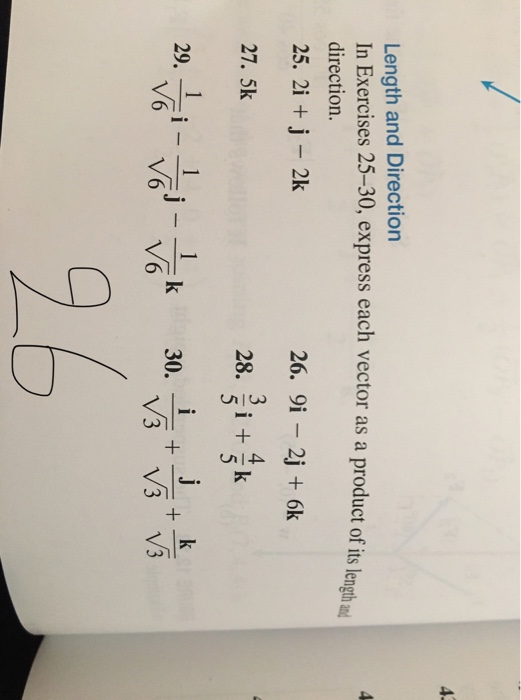 Length and Direction
In Exercises 25–30, express each vector as a product of its length and
direction.
25. 2i + j − 2k
26. 9i − 2j + 6k
27. 5k
28. 3/5 i + 4/5 k
29. 1/√6 i − 1/√6 j − 1/√6 k
30. i/√3 + j/√3 + k/√3
26
4